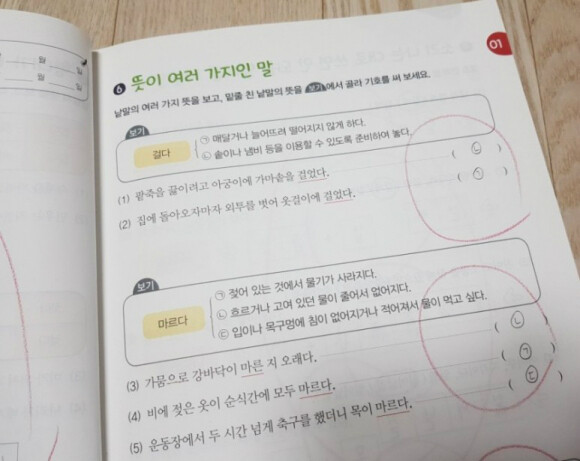 월 일
월 일
01
6 뜻이 여러 가지인 말
낱말의 여러 가지 뜻을 보고, 밑줄 친 낱말의 뜻을 보기 에서 골라 기호를 써 보세요.
보기
걸다
㉠ 매달거나 늘어뜨려 떨어지지 않게 하다.
㉡ 솥이나 냄비 등을 이용할 수 있도록 준비하여 놓다.
(1) 팥죽을 끓이려고 아궁이에 가마솥을 걸었다. ( ㉡ )
(2) 집에 돌아오자마자 외투를 벗어 옷걸이에 걸었다. ( ㉠ )
보기
마르다
㉠ 젖어 있는 것에서 물기가 사라지다.
㉡ 흐르거나 고여 있던 물이 줄어서 없어지다.
㉢ 입이나 목구멍에 침이 없어지거나 적어져서 물이 먹고 싶다.
(3) 가뭄으로 강바닥이 마른 지 오래다. ( ㉡ )
(4) 비에 젖은 옷이 순식간에 모두 마르다. ( ㉠ )
(5) 운동장에서 두 시간 넘게 축구를 했더니 목이 마르다. ( ㉢ )